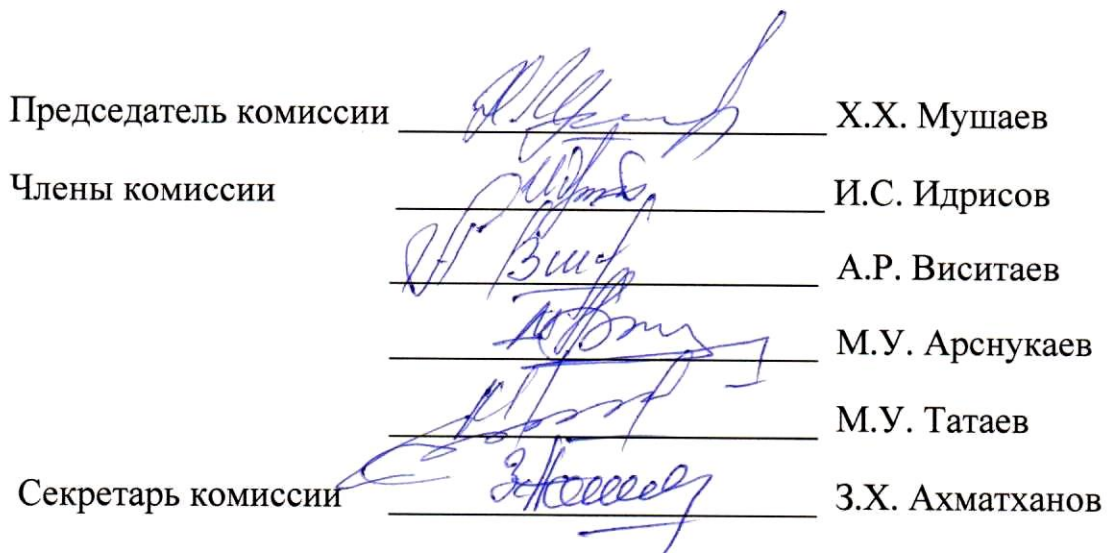 Председатель комиссии Х.Х. Мушаев
Члены комиссии И.С. Идрисов
А.Р. Виситаев
М.У. Арснукаев
М.У. Татаев
Секретарь комиссии З.Х. Ахматханов